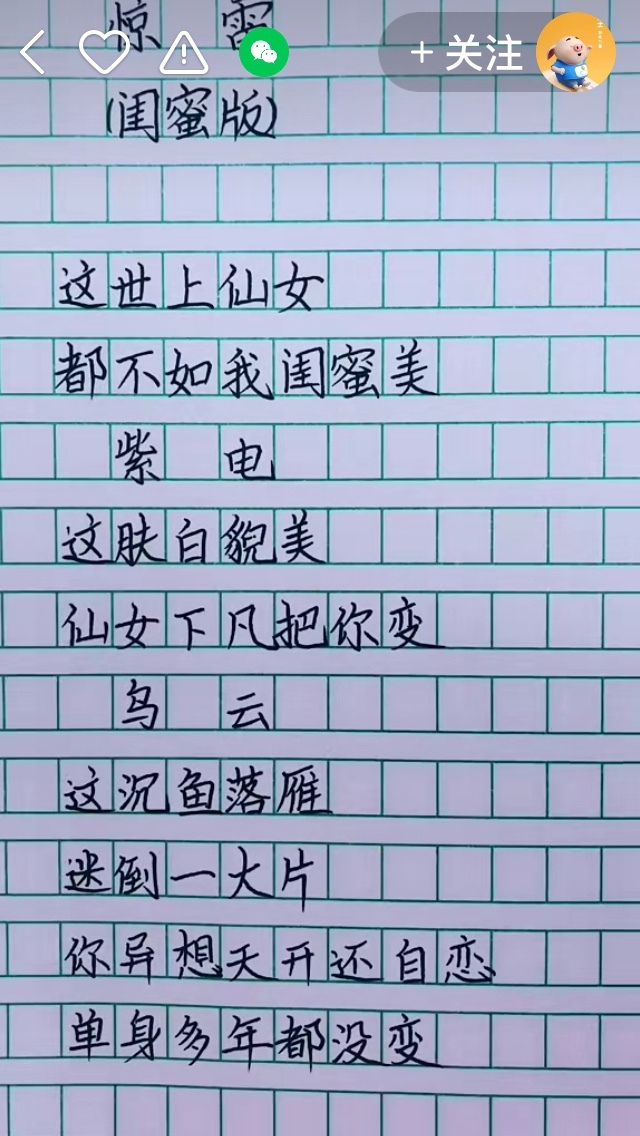 惊 雷
+ 关注
(闺蜜版)
这世上仙女
都不如我闺蜜美
紫 电
这肤白貌美
仙女下凡把你变
乌 云
这沉鱼落雁
迷倒一大片
你异想天开还自恋
单身多年都没变